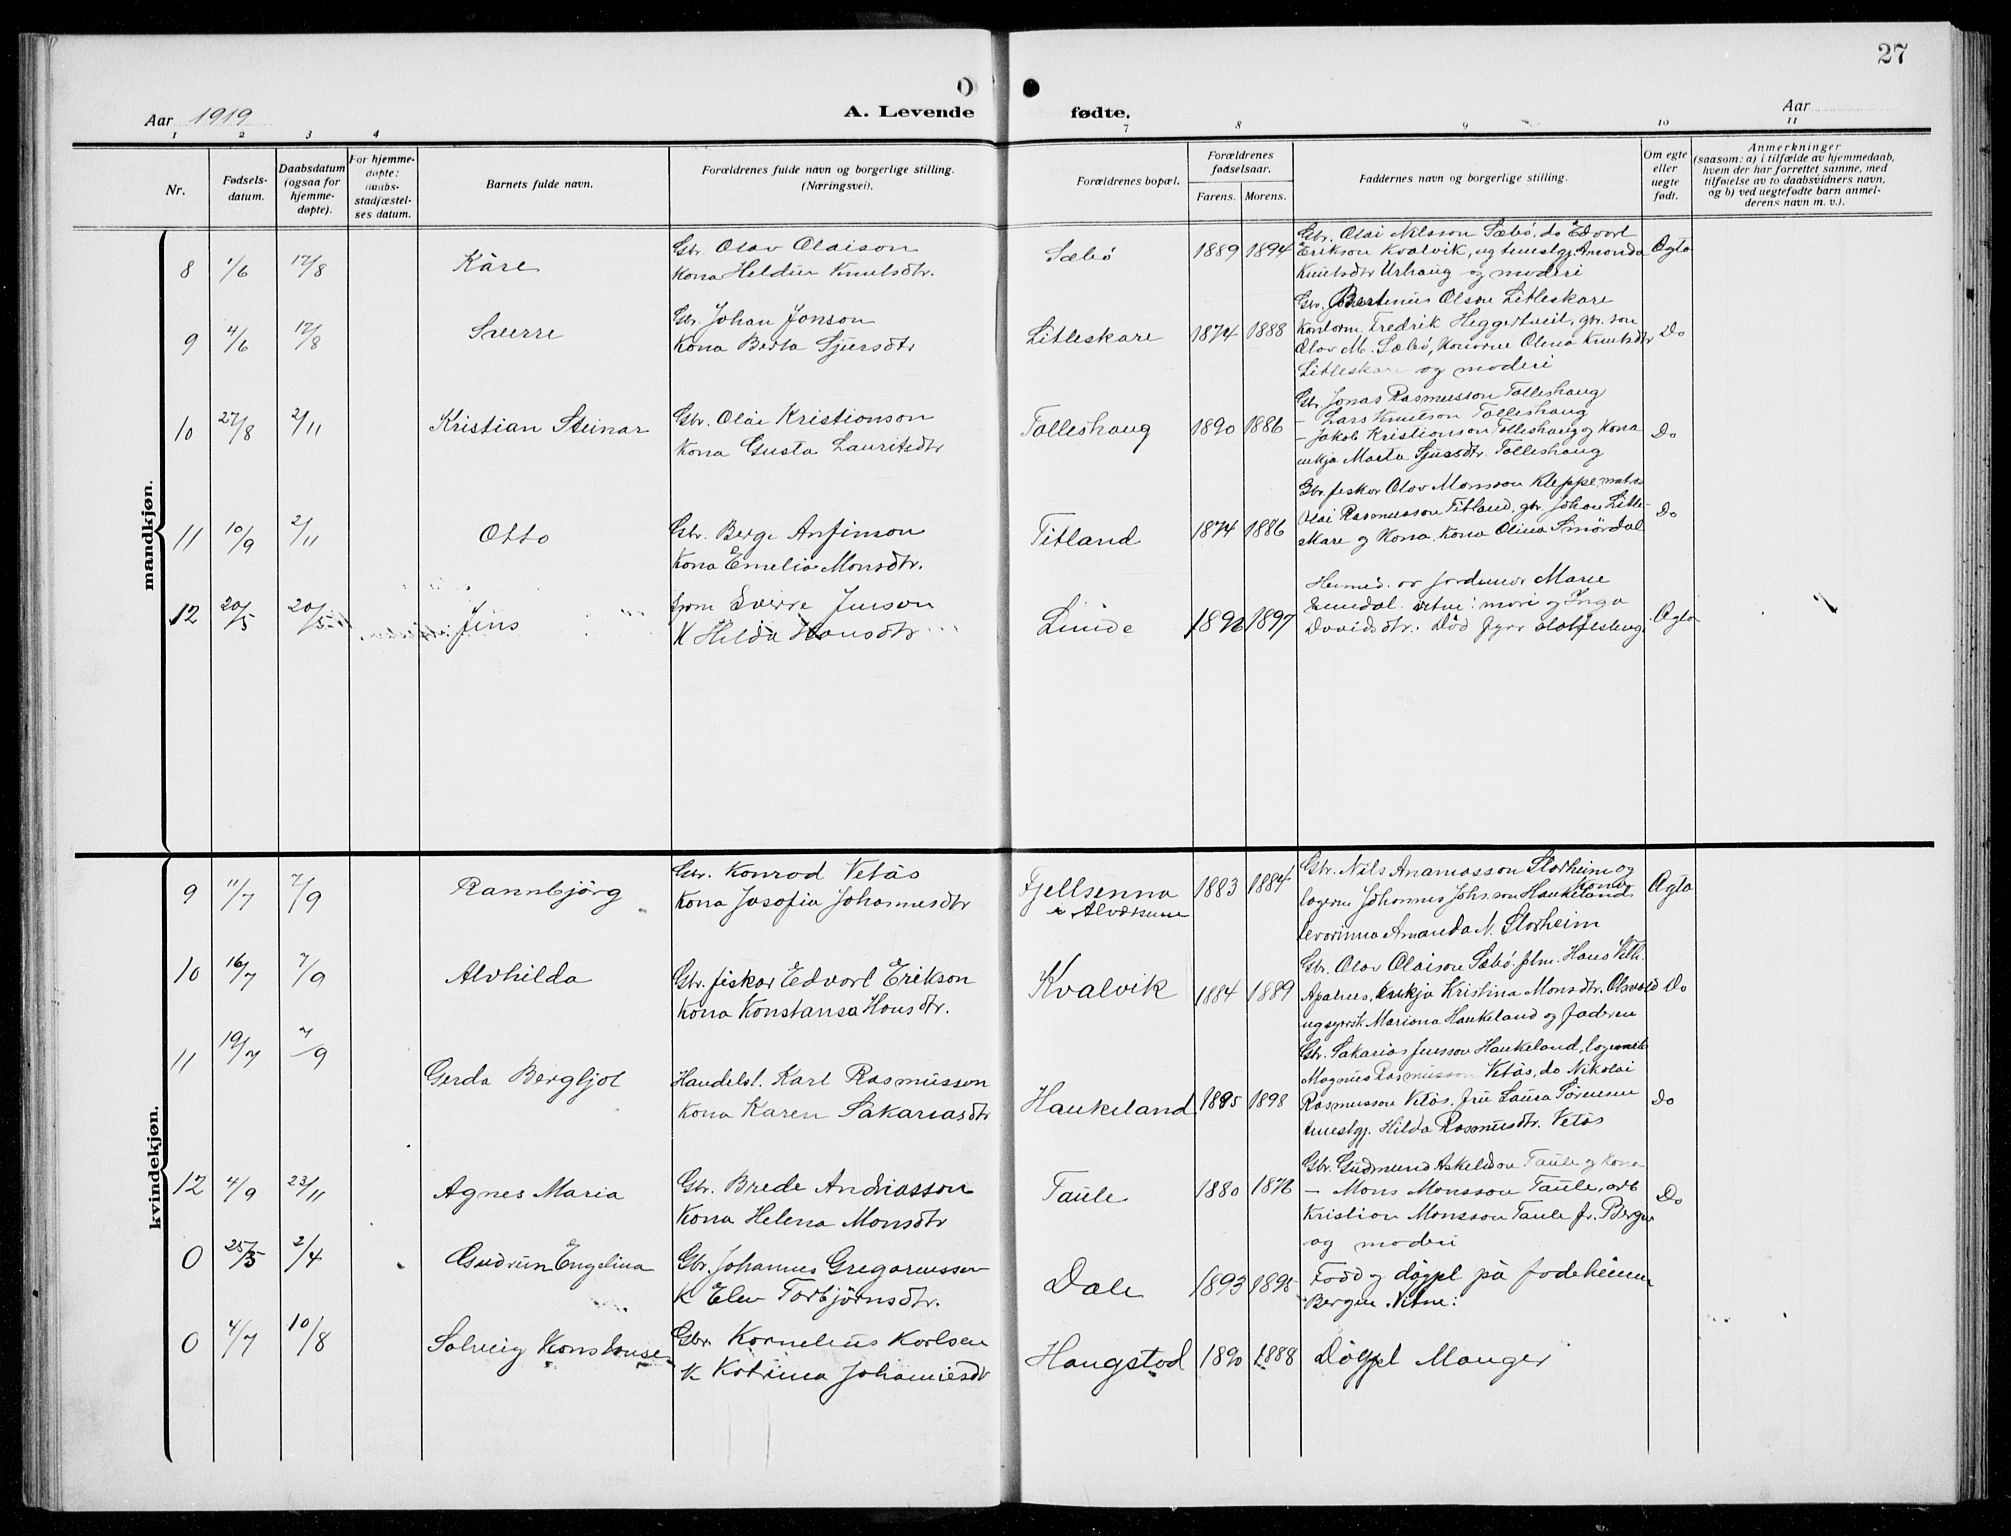 27
Aar 1919
A. Levende fødte.
Aar
1 2 3 4 7 8 9 10 11
Nr.
Fødsels-
datum.
Daabsdatum
(ogsaa for
hjemme-
døpte).
For hjemme-
døpte:
daabs-
stadfæstel-
ses datum.
Barnets fulde navn.
Forældrenes fulde navn og borgerlige stilling.
(Næringsvei).
Forældrenes bopæl.
Forældrenes
fødselsaar.
Farens. Morens.
Faddernes navn og borgerlige stilling.
Om egte
eller
uegte
født.
Anmerkninger
(saasom: a) i tilfælde av hjemmedaab,
hvem der har forrettet samme, med
tilføielse av to daabsvidners navn,
og b) ved uegtefødte barn anmel-
derens navn m. v.).
mandkjøn.
8 1/6 17/8 Kåre
Gbr. Olav Olaison
Kona Heldur Knutsdtr.
Sæbø 1889 1894
Gbr. Olai Nilsson Sæbø, do Edvart
Erikson Kvalvik, ug tenestgj. Amonda
Knutsdtr Urhaug og moderi
Ægta
9 4/6 17/8 Sverre
Gbr. Johan Jonson
Kona Berta Sjursdtr
Litleskare 1874 1888
Gbr. Bertinius Olson Litleskare
Kontorm. Fredrik Heggertveit, gbr. son
Olav M. Sæbø, Konorne Olena Knutsdtr
Litleskare og moderi
Do
10 27/8 2/11 Kristian Steinar
Gbr. Olai Kristianson
Kona Gusta Lauritsdtr
Tolleshaug 1890 1886
Gbr. Jonas Rasmusson Tolleshaug
- Lars Knutson Tolleshaug
- Jakob Kristianson Tolleshaug og Kona
enkja Marta Sjursdtr. Tolleshaug
Do
11 10/9 2/11 Otto
Gbr. Berge Anfinson
Kona Emelia Monsdtr.
Titland 1874 1886
Gbr. fiskar Olav Monsson Kleppe, matros
Olai Rasmusson Titland, gbr. Johan Litle-
skare og Kona, Kona Olina Smørdal
Do
12 20/5 20/5 Jens
Sverre Jenson
K Hilda Hansdtr
Linde 1896 1897
Heimed. av jordmor Marie
vitne: mori og Inga
Davidsdtr. Død fyre stadfesteng.
Ægta
kvindekjøn.
9 11/7 7/9 Rannbjörg
Gbr. Konrad Vetås
Kona Josofia Johannesdtr
Fjellsenna
i Alversund
1883 1884
Gbr. Nils Ananiasson Storheim og Kona
lagerm Johannes Johs.son Haukeland
lerarinna Amanda N. Storheim
Ægta
10 16/7 7/9 Alvhilda
Gbr. fiskar Edvart Erikson
Kona Konstansa Hansdtr.
Kvalvik 1884 1889
Gbr. Olav Olaison Sæbø, Hans Vilh.
Enkja Kristina Monsdtr.
Mariana Haukeland og faderen
Do
11 19/7 7/9 Gerda Bergljot
Handelsl. Karl Rasmusson
Kona Karen Sakariasdtr
Haukeland 1895 1898
Gbr. Sakarias Jensson Haukeland,
Magnus Rasmusson Vetås, do Nikolai
Rasmusson Vetås, fru Laura Sørensen
tenestgj. Hilda Rasmusdtr. Vetås
Do
12 4/9 23/11 Agnes Maria
Gbr. Brede Andriasson
Kona Helena Monsdtr
Taule 1880 1876
Gbr. Gudmund Askeldson Taule og Kona
- Mons Monsson Taule, arb
Kristian Monsson Taule fr. Bergen
og moderi
Do
0 25/3 2/4 Gudrun Engelina
Gbr. Johannes Gregoriusson
K Elev Torbjørnsdtr.
Dale 1893 1895
Fødd og døypt på fødeheimen
Bergen. Vitne:
0 4/7 10/8 Solveig Konstanse
Gbr. Kornelius Karlsen
K Katrina Johannesdtr
Haugstad 1890 1888
Døypt Manger